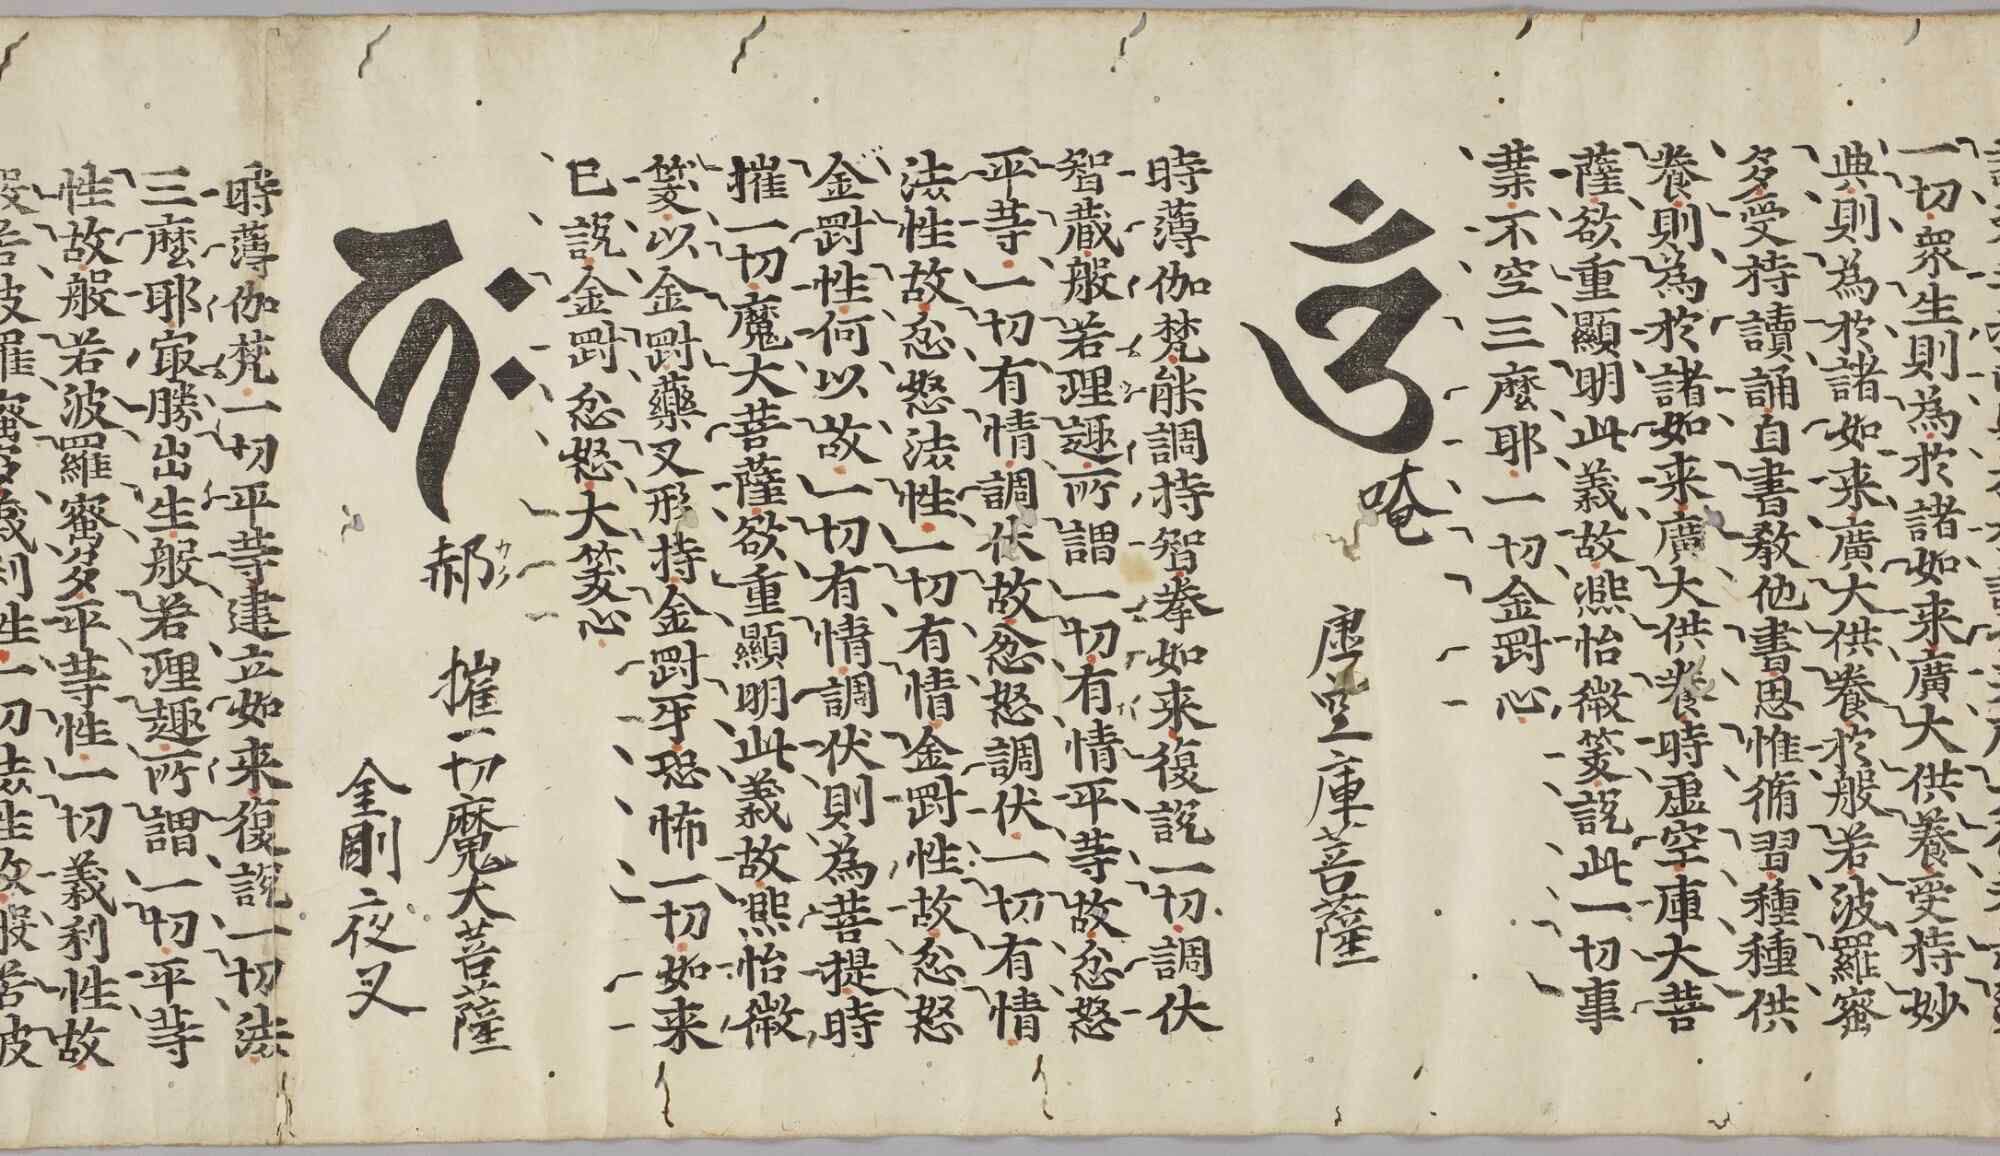 一切衆生則為於諸如来廣大供養受持妙
典則為於諸如来廣大供養於般若波羅蜜
多受持讀誦自書教他書思惟脩習種種供
養則為於諸如来廣大供養時虚空庫大菩
薩欲重顯明此義故熈怡微笑説此一切事
業不空三麼耶一切金剛心
唵
虚空庫菩薩
時薄伽梵能調持智拳如来復説一切調伏
智蔵般若理趣所謂一切有情平等故忿怒
平等一切有情調伏故忿怒調伏一切有情
法性故忿怒法性一切有情金剛性故忿怒
金剛性何以故一切有情調伏則為菩提時
摧一切魔大菩薩欲重顯明此義故熈怡微
笑以金剛藥叉形持金剛牙恐怖一切如来
已説金剛忿怒大笑心
郝
カク
摧一切魔大菩薩
金剛夜叉
時薄伽梵一切平等建立如来復説一切法
三麼耶冣勝出生般若理趣所謂一切平等
性故般若波羅蜜多平等性一切義利性故
般若波羅蜜多義利性一切法性故般若波